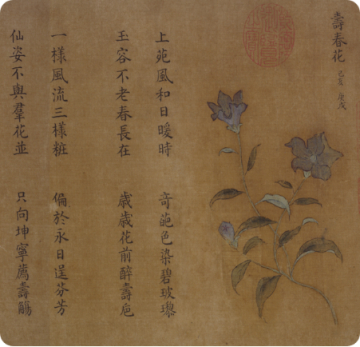 壽春花
上苑風和日暖時
奇葩色染碧玻瓈
玉容不老春長在
歲歲花前醉壽巵
一樣風流三樣粧
偏於永日逞芬芳
仙姿不與羣花並
只向坤寧薦壽觴